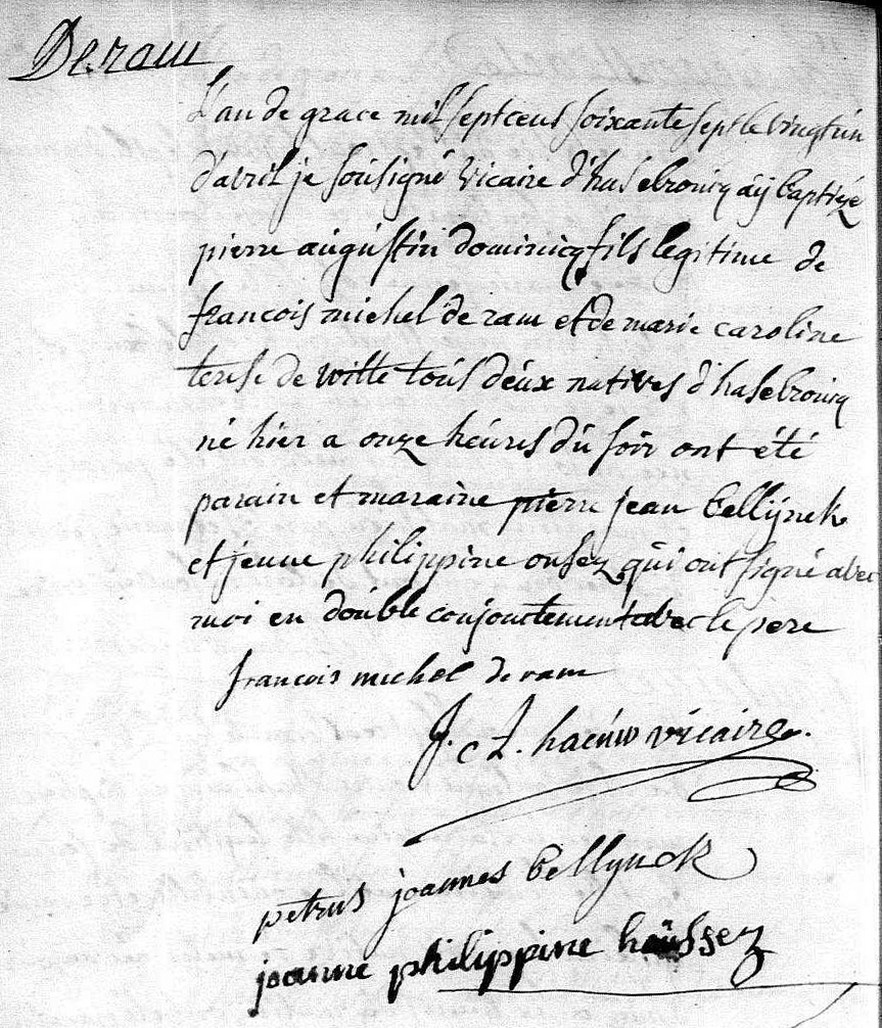 Deram
L'an de grace mil sept cens soixante sept le vingt un
d'avril je sousigné vicaire d'hasebroucq aÿ baptizé
pierre augustin dominicq fils legitime de
francois michel de ram et de marie caroline
terese de witte tous deux natives d'hasebroucq
né hier a onze heures du soir ont été
parain et maraine pierre jean bellÿnck
et jenne philippine ousez qui ont signé avec
moi en double conjoictement avec le pere
francois michel de ram
J. C. L. hacuw vicaire.
petrus joannes bellynck
joanne philippine haüssez